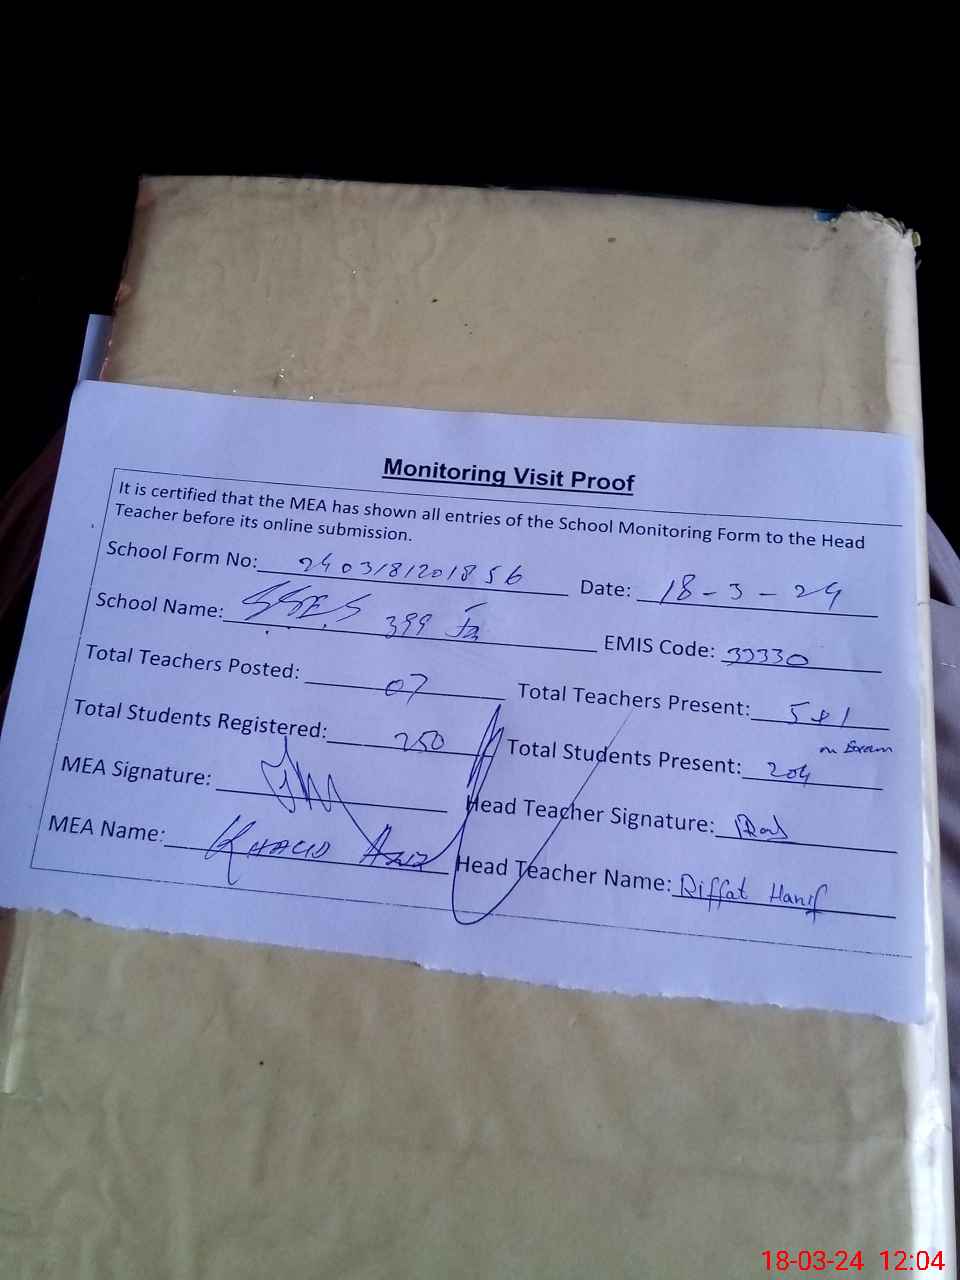 Monitoring Visit Proof
It is certified that the MEA has shown all entries of the School Monitoring Form to the Head
Teacher before its online submission.
School Form No: 24031812018 56 Date: 18-3-24
School Name: 399 EMIS Code: 32330
Total Teachers Posted: 07 Total Teachers Present: 5+1
on Exam
Total Students Registered: 250 Total Students Present: 204
MEA Signature: Head Teacher Signature:
MEA Name: KHALID AZIZ Head Teacher Name: Riffat Hanif
18-03-24 12:04